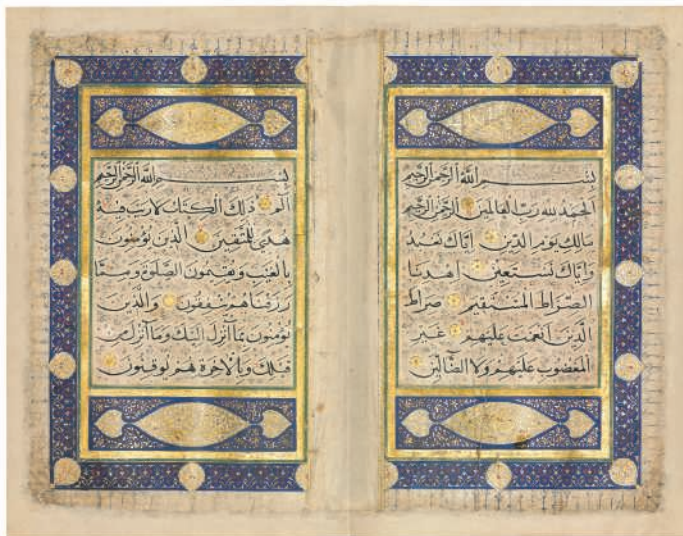 بِسْمِ اللَّهِ الرَّحْمَنِ الرَّحِيمِ
الْحَمْدُ لِلَّهِ رَبِّ الْعَالَمِينَ الرَّحْمَنِ الرَّحِيمِ
مَالِكِ يَوْمِ الدِّينِ إِيَّاكَ نَعْبُدُ
وَإِيَّاكَ نَسْتَعِينُ اهْدِنَا
الصِّرَاطَ الْمُسْتَقِيمَ صِرَاطَ
الَّذِينَ أَنْعَمْتَ عَلَيْهِمْ غَيْرِ
الْمَغْضُوبِ عَلَيْهِمْ وَلَا الضَّالِّينَ
بِسْمِ اللَّهِ الرَّحْمَنِ الرَّحِيمِ
الم ذَلِكَ الْكِتَابُ لَا رَيْبَ فِيهِ
هُدًى لِلْمُتَّقِينَ الَّذِينَ يُؤْمِنُونَ
بِالْغَيْبِ وَيُقِيمُونَ الصَّلَوةَ وَمِمَّا
رَزَقْنَاهُمْ يُنْفِقُونَ وَالَّذِينَ
يُؤْمِنُونَ بِمَا أُنْزِلَ إِلَيْكَ وَمَا أُنْزِلَ مِنْ
قَبْلِكَ وَبِالْآخِرَةِ هُمْ يُوقِنُونَ